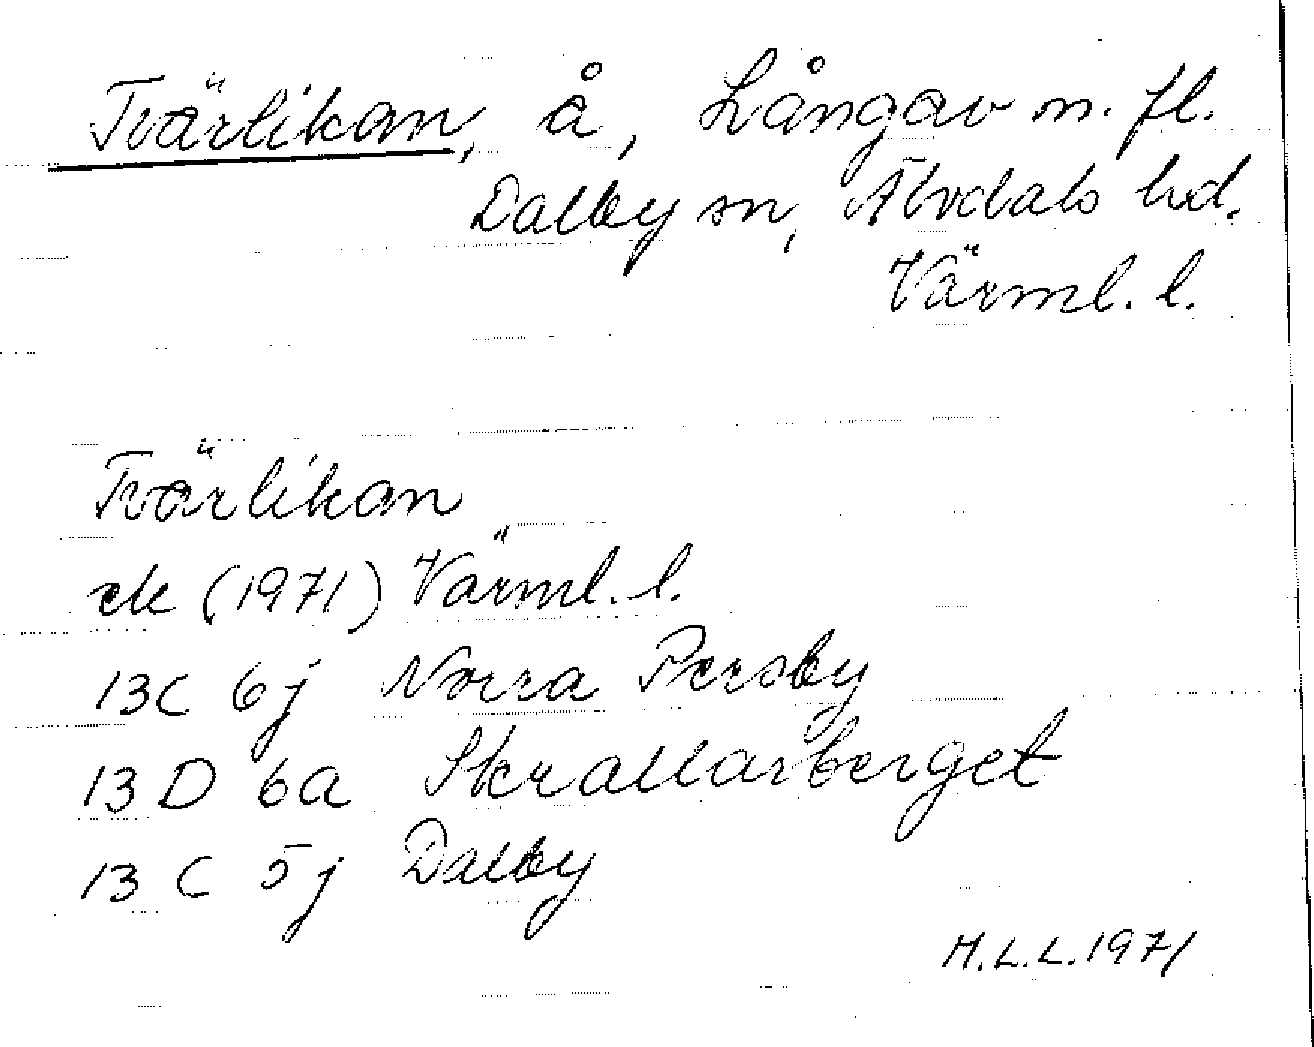 Tvärlikan, å, Långav m. fl.
Dalby sn, Älvdals hd.
Värml. l.
Tvärlikan
ek (1971) Värml. l.
13C 6j Norra Persby
13 D 6a Skrallarberget
13 C 5j Dalby
M.L.L.1971